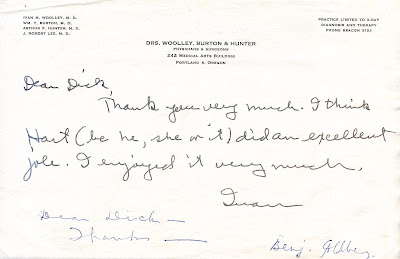 IVAN M. WOOLLEY, M. D.
WM. Y. BURTON, M. D.
ARTHUR F. HUNTER, M. D.
J. ROBERT LEE, M. D.
PRACTICE LIMITED TO X-RAY
DIAGNOSIS AND THERAPY
PHONE BEACON 3103
DRS. WOOLLEY, BURTON & HUNTER
PHYSICIANS & SURGEONS
242 MEDICAL ARTS BUILDING
PORTLAND 5, OREGON
Dear Dick,
Thank you very much. I think
Hart (be he, she or it) did an excellent
job. I enjoyed it very much.
Ivan
Dear Dick —
Thanks —
Benj.